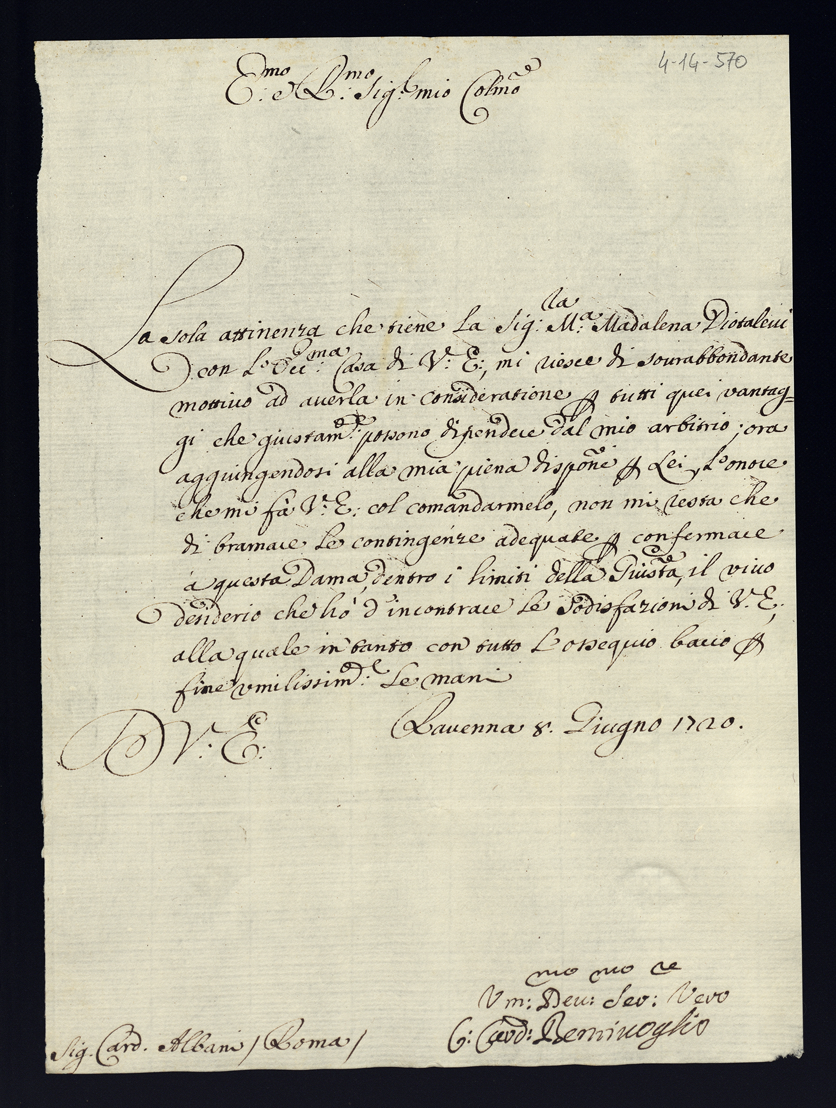 4-14-570
E:mo e R:mo Sig:re mio Colmo
La sola attinenza che tiene la Sig:ra M:a Madalena Diotalevi
con l'Ecc:ma Casa di V: E:, mi riesce di sovrabbondante
mottivo ad averla in consideratione p tutti quei vantag=
gi che giustam:te possono dipendere dal mio arbitrio; ora
aggiungendosi alla mia piena dispone p Lei, l'onore
che mi fà V: E: col comandarmelo, non mi resta che
di bramare le contingenze adequate p confermare
à questa Dama, dentro i limiti della Giusta, il vivo
desiderio che hò d'incontrare le sodisfazioni di V: E:,
alla quale in tanto con tutto l'ossequio bacio p
fine umilissim:te le mani
D V: E: Ravenna 8. Giugno 1720.
Um:mo Dev:mo Ser:re Vero
C: Card: Bentivoglio
Sig. Card. Albani / Roma /